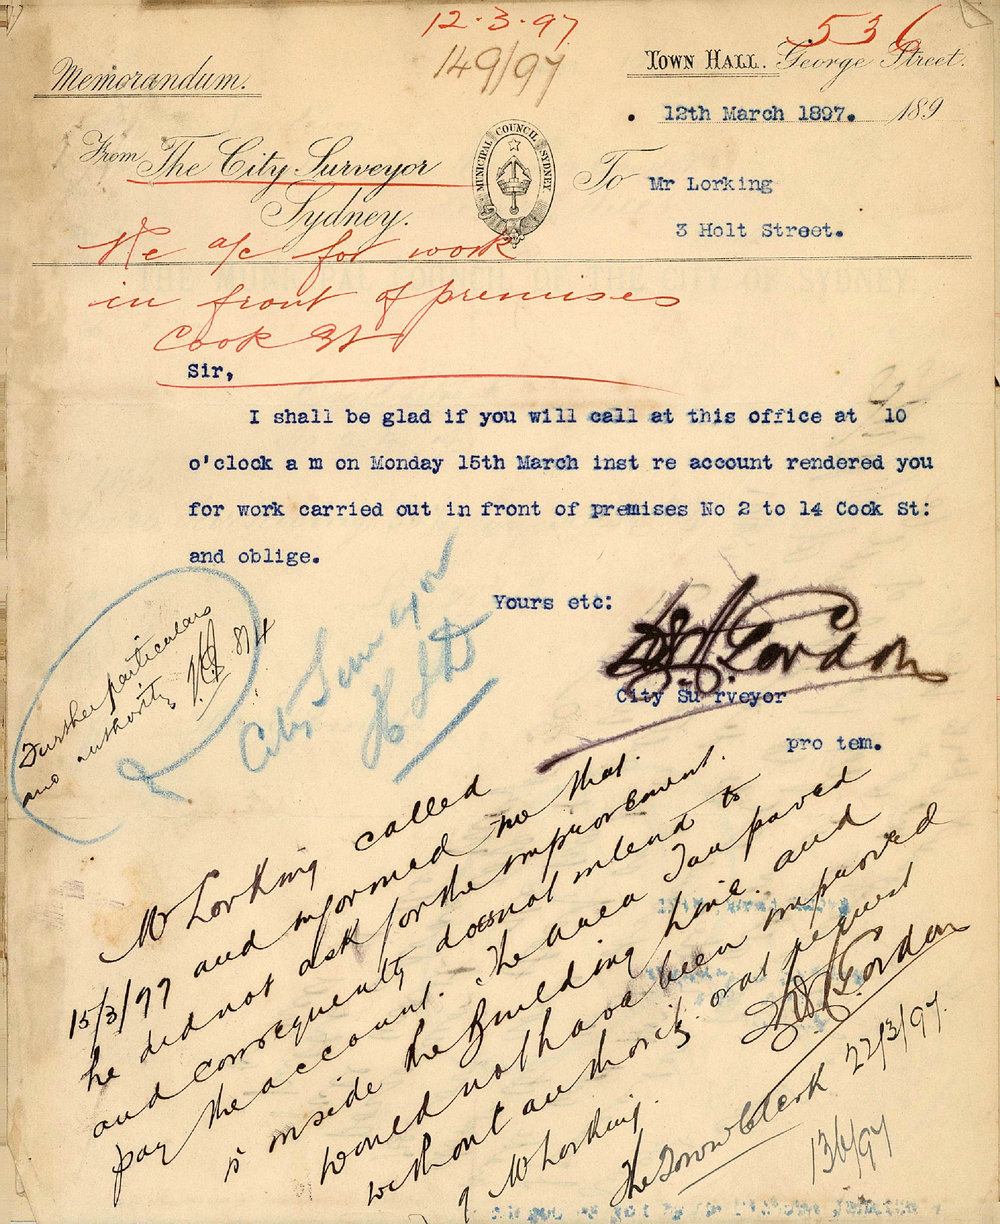 12.3.97
149/97
536
Memorandum.
TOWN HALL. George Street.
12th March 1897. 189
From The City Surveyor
Sydney.
MUNICIPAL COUNCIL SYDNEY
To Mr Lorking
3 Holt Street.
Re a/c for work
in front of premises
Cook St
Sir,
I shall be glad if you will call at this office at 10
o'clock a m on Monday 15th March inst re account rendered you
for work carried out in front of premises No 2 to 14 Cook St:
and oblige.
Yours etc:
Gordon
City Surveyor
pro tem.
Further particulars
and authority
City Surveyor
Mr Lorking called
15/3/97 and informed me that
he did not ask for the improvement.
and consequently does not intend to
pay the account. The area I an paved
is inside the Building line. and
would not have been improved
without authority oral request
of Mr Lorking.
Gordon
The Town Clerk 22/3/97.
136/97